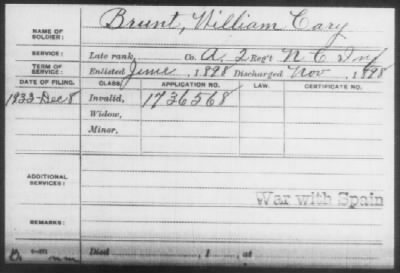 NAME OF SOLDIER: Brunt, William Cary
SERVICE: Late rank, Co. A. 2 Reg't N C Inf
TERM OF SERVICE: Enlisted June, 1898 Discharged Nov, 1898
DATE OF FILING. CLASS. APPLICATION NO. LAW. CERTIFICATE NO.
1933-Dec 8 Invalid, 1736568
Widow,
Minor,
ADDITIONAL SERVICES:
War with Spain
REMARKS:
Died , 1 , at